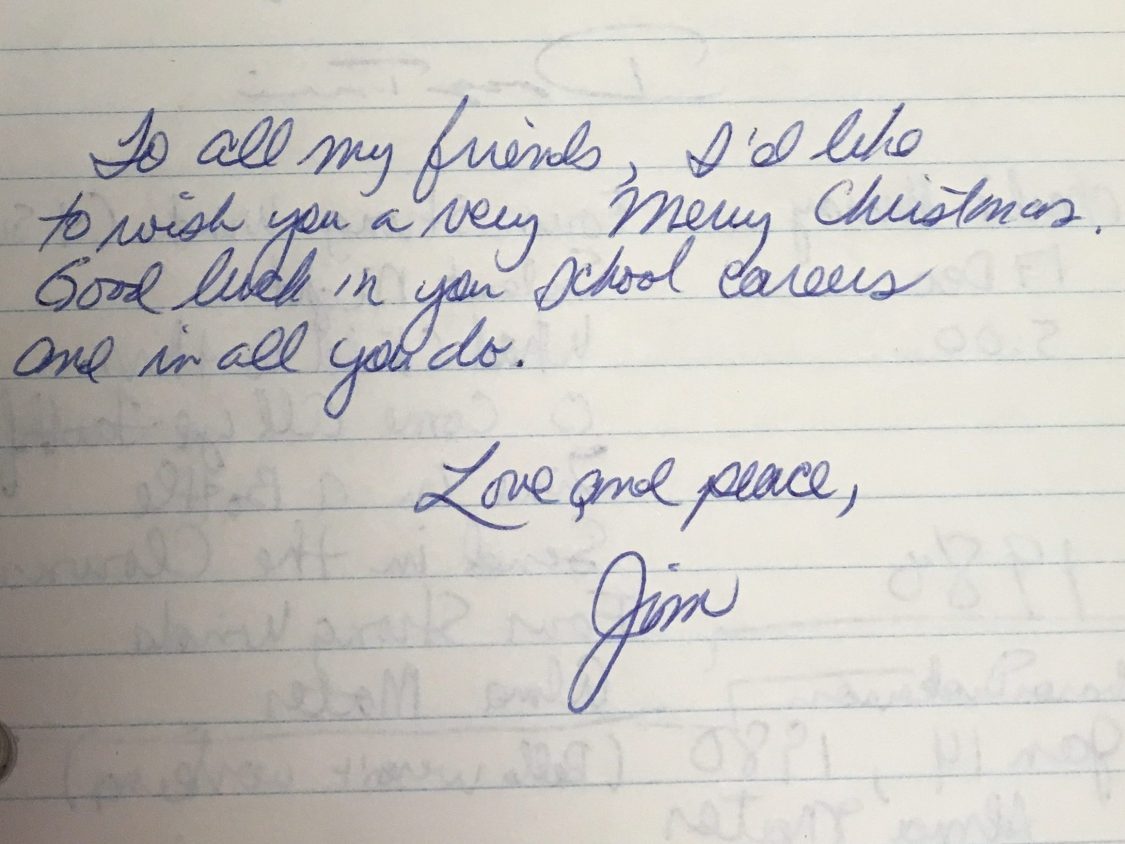 To all my friends, I'd like
to wish you a very Merry Christmas.
Good luck in your school careers
and in all you do.
Love and peace,
Jim